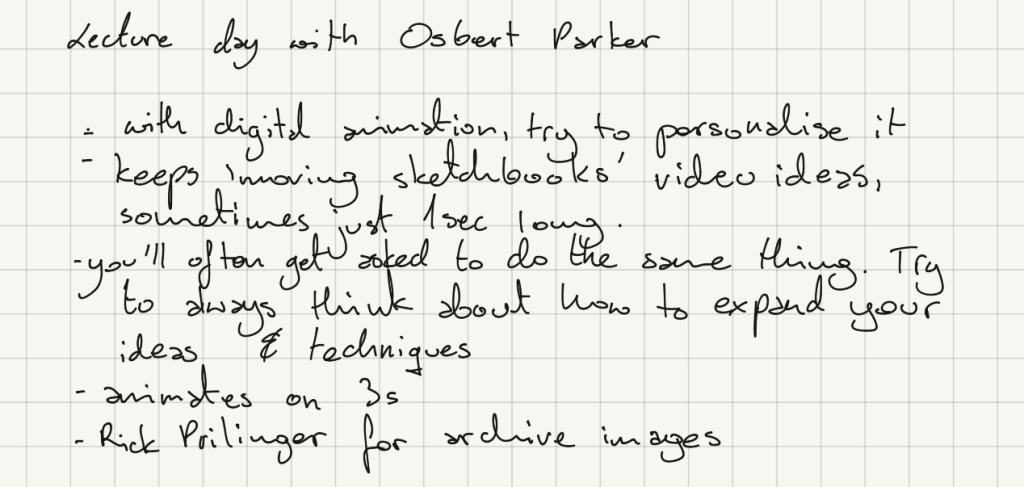 Lecture day with Osbert Parker
- with digital animation, try to personalise it
- keeps 'moving sketchbooks' video ideas,
sometimes just 1sec long.
- you'll often get asked to do the same thing. Try
to always think about how to expand your
ideas & techniques
- animates on 3s
- Rick Prilinger for archive images